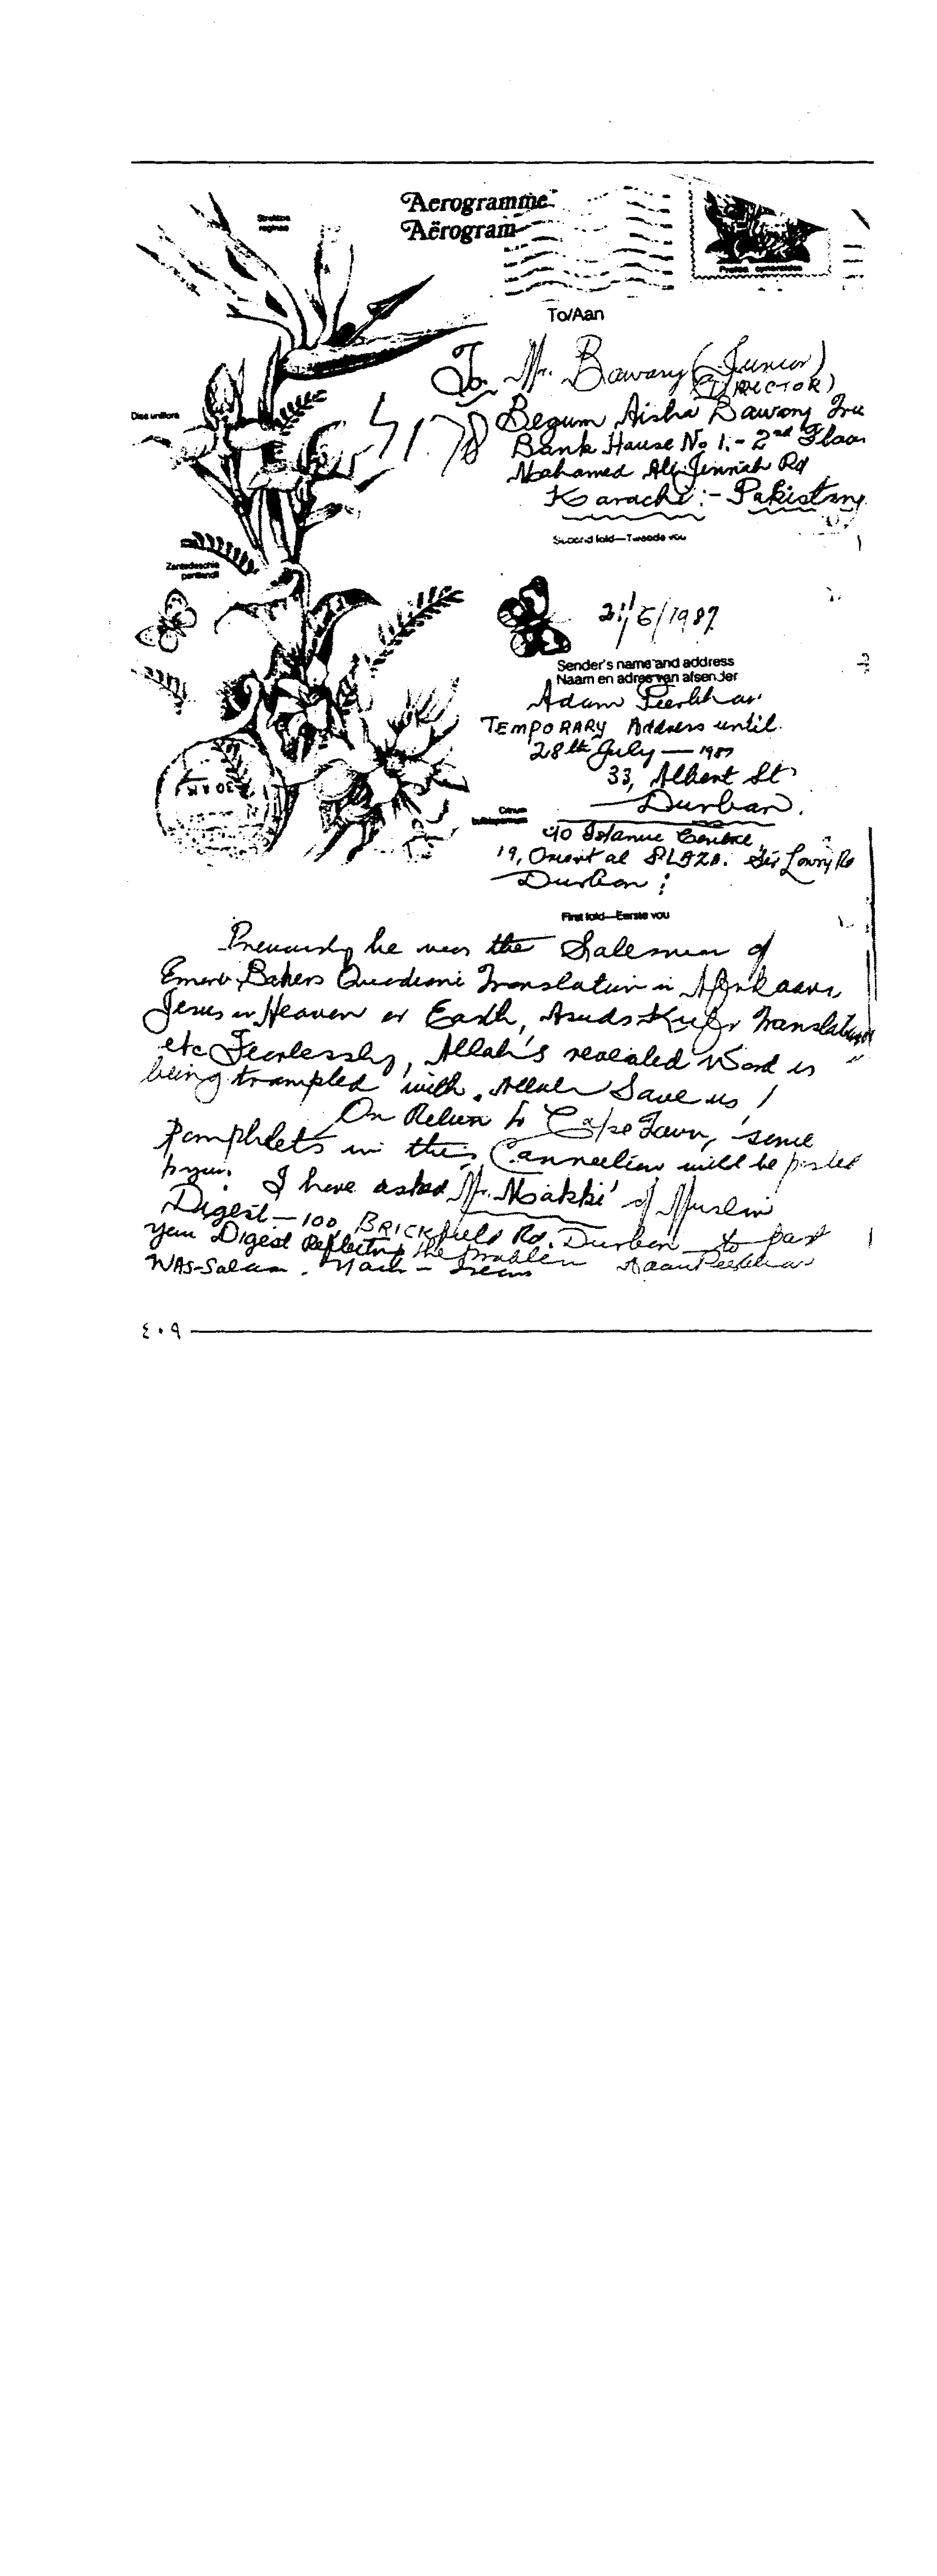 Aerogramme
Aërogram
Strelitzia reginae
To/Aan
To. Mr. Bawany (Junior)
(DIRECTOR)
Begum Aisha Bawany Tru
Bank House No 1.- 2nd Floor
Mohamed Ali Jinnah Rd
Karachi :- Pakistan
Disa uniflora
Second fold—Tweede vou
Zantedeschia pentlandii
/6/1987
Sender's name and address
Naam en adres van afsender
Adam Peerbhai
TEMPORARY Address until
28th July — 1987
33, Albert St
Durban.
c/o Islamic Centre,
19, Oriental PLAZA. Sir Lowry Rd
Durban ;
First fold—Eerste vou
Previously he was the Salesman of
Bakers Quadiani Translation in Afrikaans,
Jesus in Heaven or Earth, Asads Kufr Translation
etc Fearlessly, Allah's revealed Word is
being trampled with. Allah Save us !
On Return to Cape Town, some
Pamphlets in this Connection will be posted
to you. I have asked Mr. Makki of Muslim
Digest — 100, BRICKfield Rd. Durban to post
you Digest Reflecting the problem
WAS-Salaam. Adam Peerbhai
٤٠٩